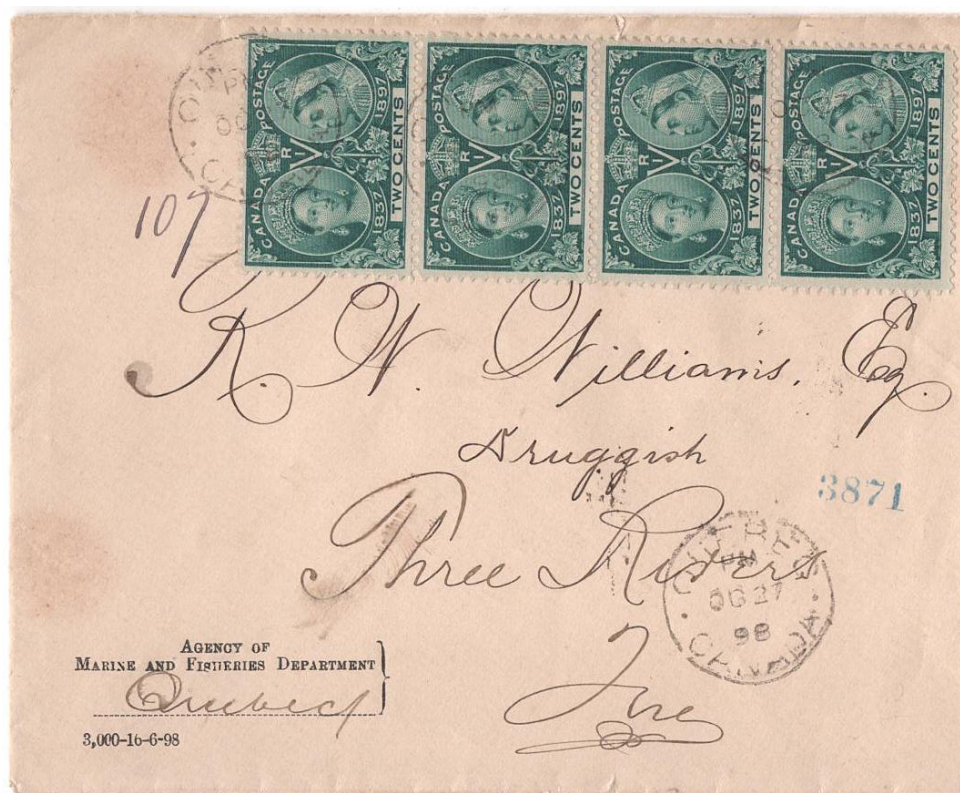 CANADA POSTAGE V R I 1837 1897 TWO CENTS
CANADA POSTAGE V R I 1837 1897 TWO CENTS
CANADA POSTAGE V R I 1837 1897 TWO CENTS
CANADA POSTAGE V R I 1837 1897 TWO CENTS
107
R. W. Williams, Esq.
Druggist
3871
Three Rivers
QUEBEC
PM
OC 27
98
CANADA
Que
AGENCY OF
MARINE AND FISHERIES DEPARTMENT
Quebec
3,000-16-6-98